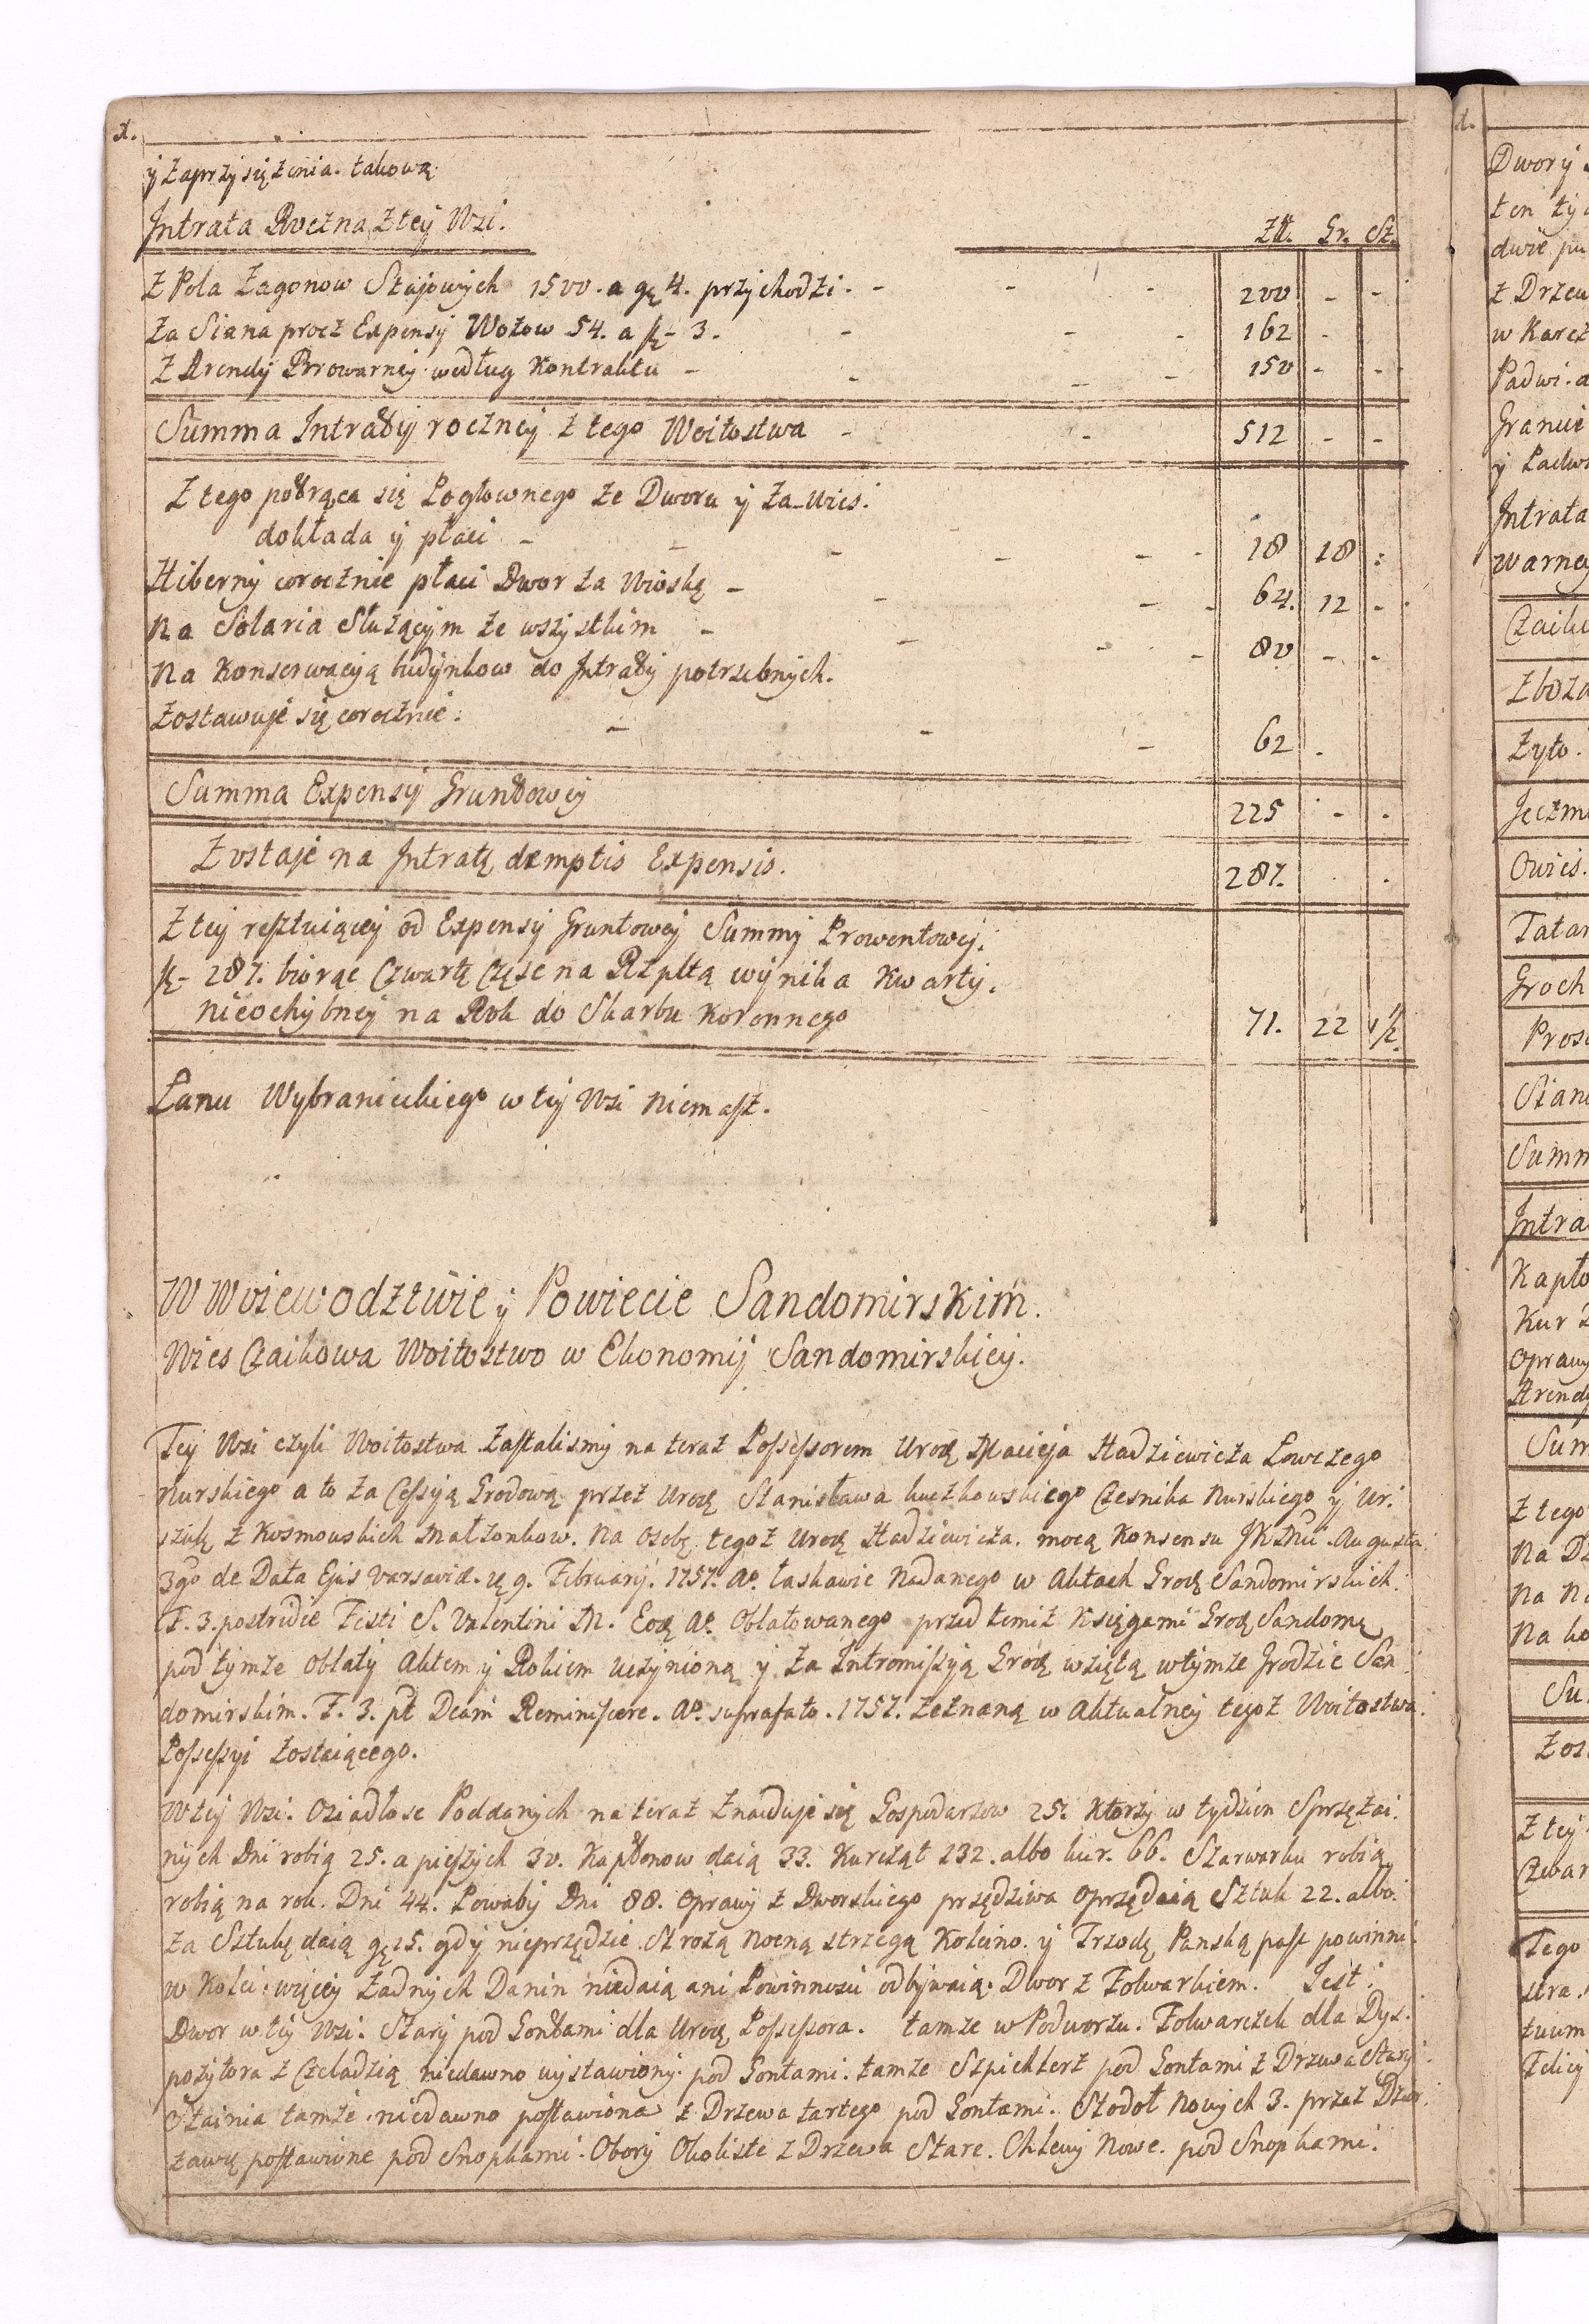 x.
y zaprzysięzenia. takowa
Jntrata Roczna z tey Wsi.
Zł. Gr. Sz.
Z Pola Zagonow Stajowych 1500. a gę 4. przychodzi - - - - 200 - -
Za Siana procz Expensy Wozow 54. a fę- 3. - - - 162 -
Z Arendy Browarney według Kontraktu - - - - 150 - -
Summa Jntraty roczney z tego Woitostwa - - 512 - -
Z tego potrąca się Pogłownego ze Dworu y za Wieś.
dokłada y płaci - - - - - - 18 18 :
Hiberny corocznie płaci Dwor za Wioskę - - - - 64. 12 -
Na Solaria Służącym ze wszystkim - - - - 80 - -
Na Konserwacyą budynkow do Jntraty potrzebnych.
zostawuje się corocznie. - - - 62 .
Summa Expensy Gruntowey 225 - .
Zostaje na Jntratę demptis Expensis. 287. . .
Z tey resztuiącey od Expensy Gruntowey Summy Prowentowey.
fę- 287. biorąc Czwartą Część na Rzpltą wynika Kwarty.
nieochybney na Rok do Skarbu Koronnego 71. 22 1/2.
Łanu Wybranieckiego w tey Wsi niemasz.
W Woiewodztwie y Powiecie Sandomirskim.
Wies Czaikowa Woitostwo w Ekonomij Sandomirskiey.
Tey Wsi czyli Woitostwa zastalismy na teraz Possessorem Urodz Macieja Hadziewicza Łowczego
Nurskiego a to za Cessyą Grodową przez Urodz Stanisława Kuczkowskiego Czesnika Nurskiego y Ur:
szulę z Kosmowskich Małżonkow. Na osobę tegoż Urodz Hadziewicza. mocą Konsensu JKMci Augusta
3go de Data Ejus Varsaviæ. 9. Februarij. 1757. Ao. łaskawie Nadanego w Aktach Grodz Sandomirskich.
F. 3. postridie Festi S. Valentini M. Eodz Ao. Oblatowanego przed temiż Księgami Grodz Sandomę
pod tymże Oblaty Aktem y Rokiem uczynioną y za Jntromissyją Grodz wziętą w tymże Grodzie San
domirskim. F. 3. pt Dcam Reminiscere. Ao. suprafato. 1757. zeznaną w Aktualney tegoż Woitostwa
Possessyi zostaiącego.
W tey Wsi. Osiadłosc Poddanych na teraz znaiduje się Gospodarzow 25. Ktorzy w tydzien Sprzężai.
nych Dni robią 25. a pieszych 30. Kapłonow daią 33. Kurcząt 132. albo kur. 66. Szarwarku robią
robią na rok. Dni 44. Powaby Dni 88. Oprawy z Dworskiego przędziwa Oprzędaią Sztuk 22. albo
za Sztukę daią gę 15. gdy nieprzędzie. Strożą nocną strzegą Koleino. y Trzodę Panską pasz powinni
w Kolei. więcey żadnych Danin niedaią ani Powinnosci odbywaią. Dwor z Folwarkiem. Jest
Dwor w tey Wsi. Stary pod Gontami dla Urodz Possessora. tamze w Podworzu. Folwarczek dla Dys.
pozytora z Czeladzią niedawno wystawiony pod Gontami. tamze Szpichlerz pod Gontami z Drzewa Stary
Stainia tamże niedawno postawiona z Drzewa tartego pod Gontami. Stodoł Nowych 3. przez Dzier
żawę postawione pod Snopkami. Obory Okoliste z Drzewa Stare. Chlewy Nowe. pod Snopkami.